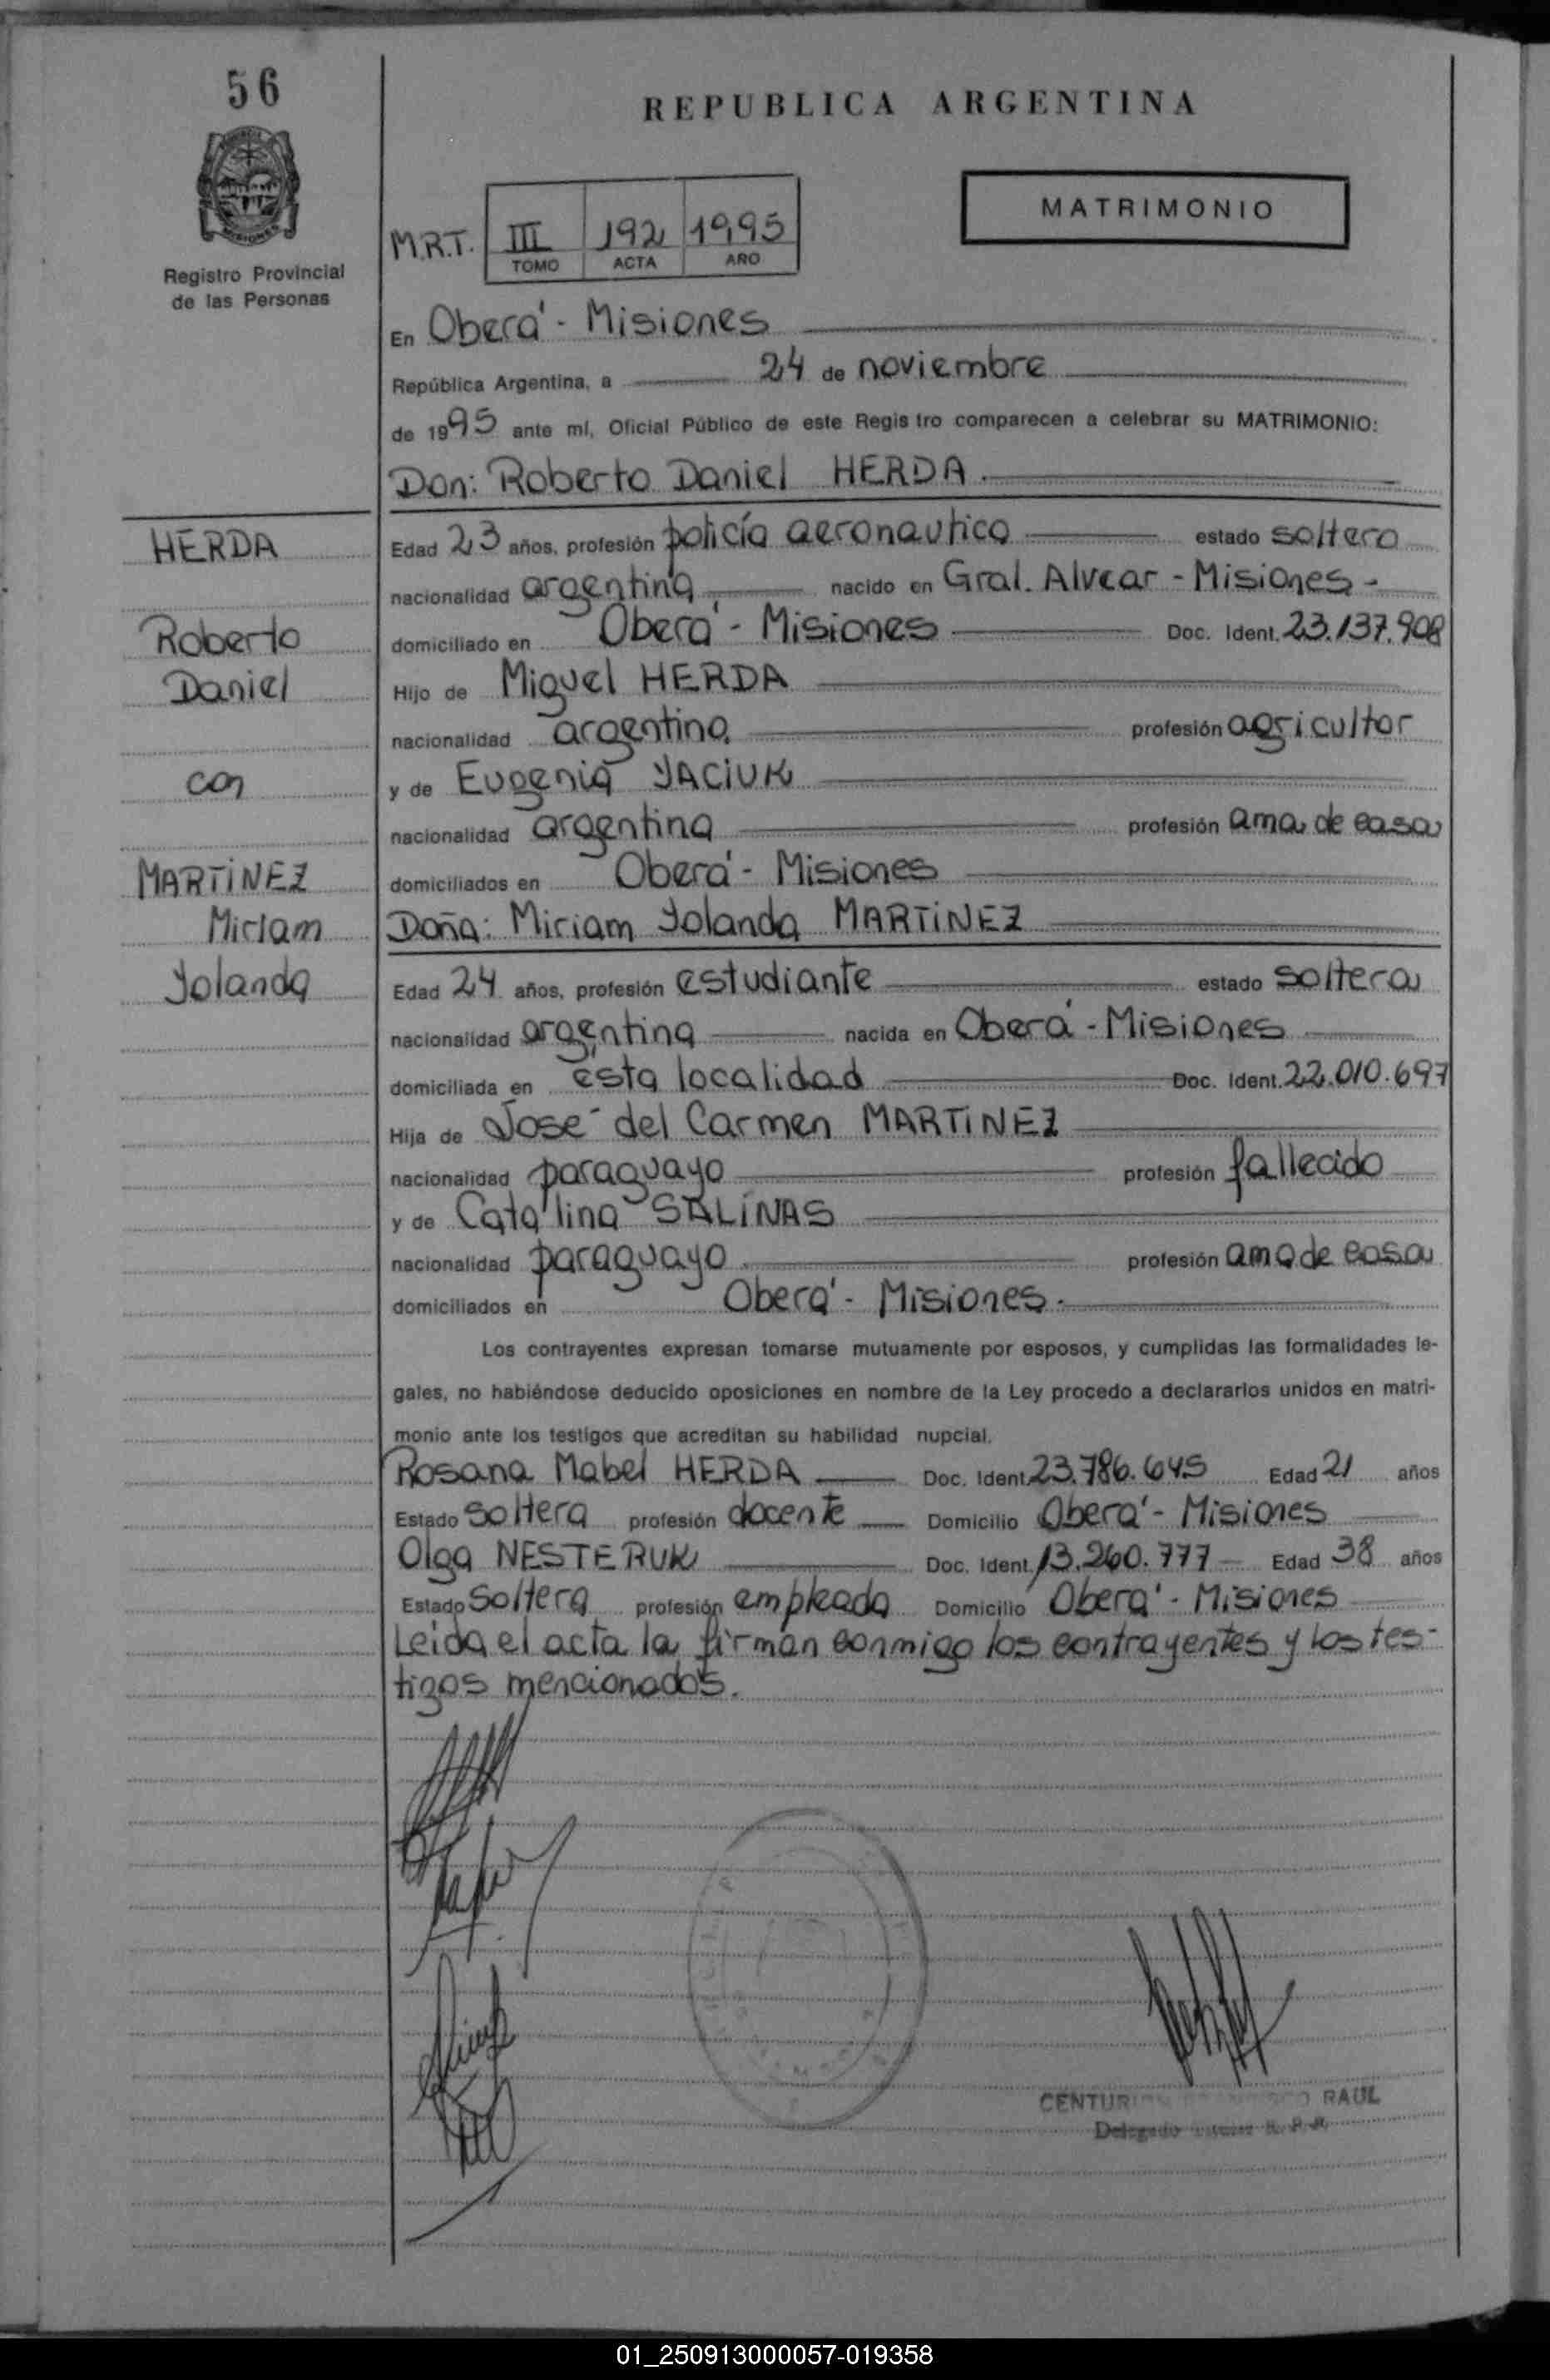 56
REPUBLICA ARGENTINA
MATRIMONIO
M.R.T. III 192 1995
TOMO ACTA AÑO
Registro Provincial
de las Personas
En Oberá - Misiones
República Argentina, a 24 de noviembre
de 1995 ante mí, Oficial Público de este Registro comparecen a celebrar su MATRIMONIO:
Don: Roberto Daniel HERDA.
HERDA
Roberto
Daniel
con
MARTINEZ
Miriam
Yolanda
Edad 23 años, profesión policía aeronautico estado soltero
nacionalidad argentina nacido en Gral. Alvear - Misiones -
domiciliado en Oberá - Misiones Doc. Ident. 23.137.908
Hijo de Miguel HERDA
nacionalidad argentino profesión agricultor
y de Eugenia YACIUK
nacionalidad argentina profesión ama de casa
domiciliados en Oberá - Misiones
Doña: Miriam Yolanda MARTINEZ
Edad 24 años, profesión estudiante estado soltera
nacionalidad argentina nacida en Oberá - Misiones
domiciliada en esta localidad Doc. Ident. 22.010.697
Hija de José del Carmen MARTINEZ
nacionalidad paraguayo profesión fallecido
y de Catalina SALINAS
nacionalidad paraguayo profesión ama de casa
domiciliados en Oberá - Misiones.
Los contrayentes expresan tomarse mutuamente por esposos, y cumplidas las formalidades le-
gales, no habiéndose deducido oposiciones en nombre de la Ley procedo a declararlos unidos en matri-
monio ante los testigos que acreditan su habilidad nupcial.
Rosana Mabel HERDA Doc. Ident. 23.786.645 Edad 21 años
Estado soltera profesión docente Domicilio Oberá - Misiones
Olga NESTERUK Doc. Ident. 13.260.777 Edad 38 años
Estado soltera profesión empleada Domicilio Oberá - Misiones
Leída el acta la firman conmigo los contrayentes y los tes-
tigos mencionados.
RAUL
Delegado
01_250913000057-019358